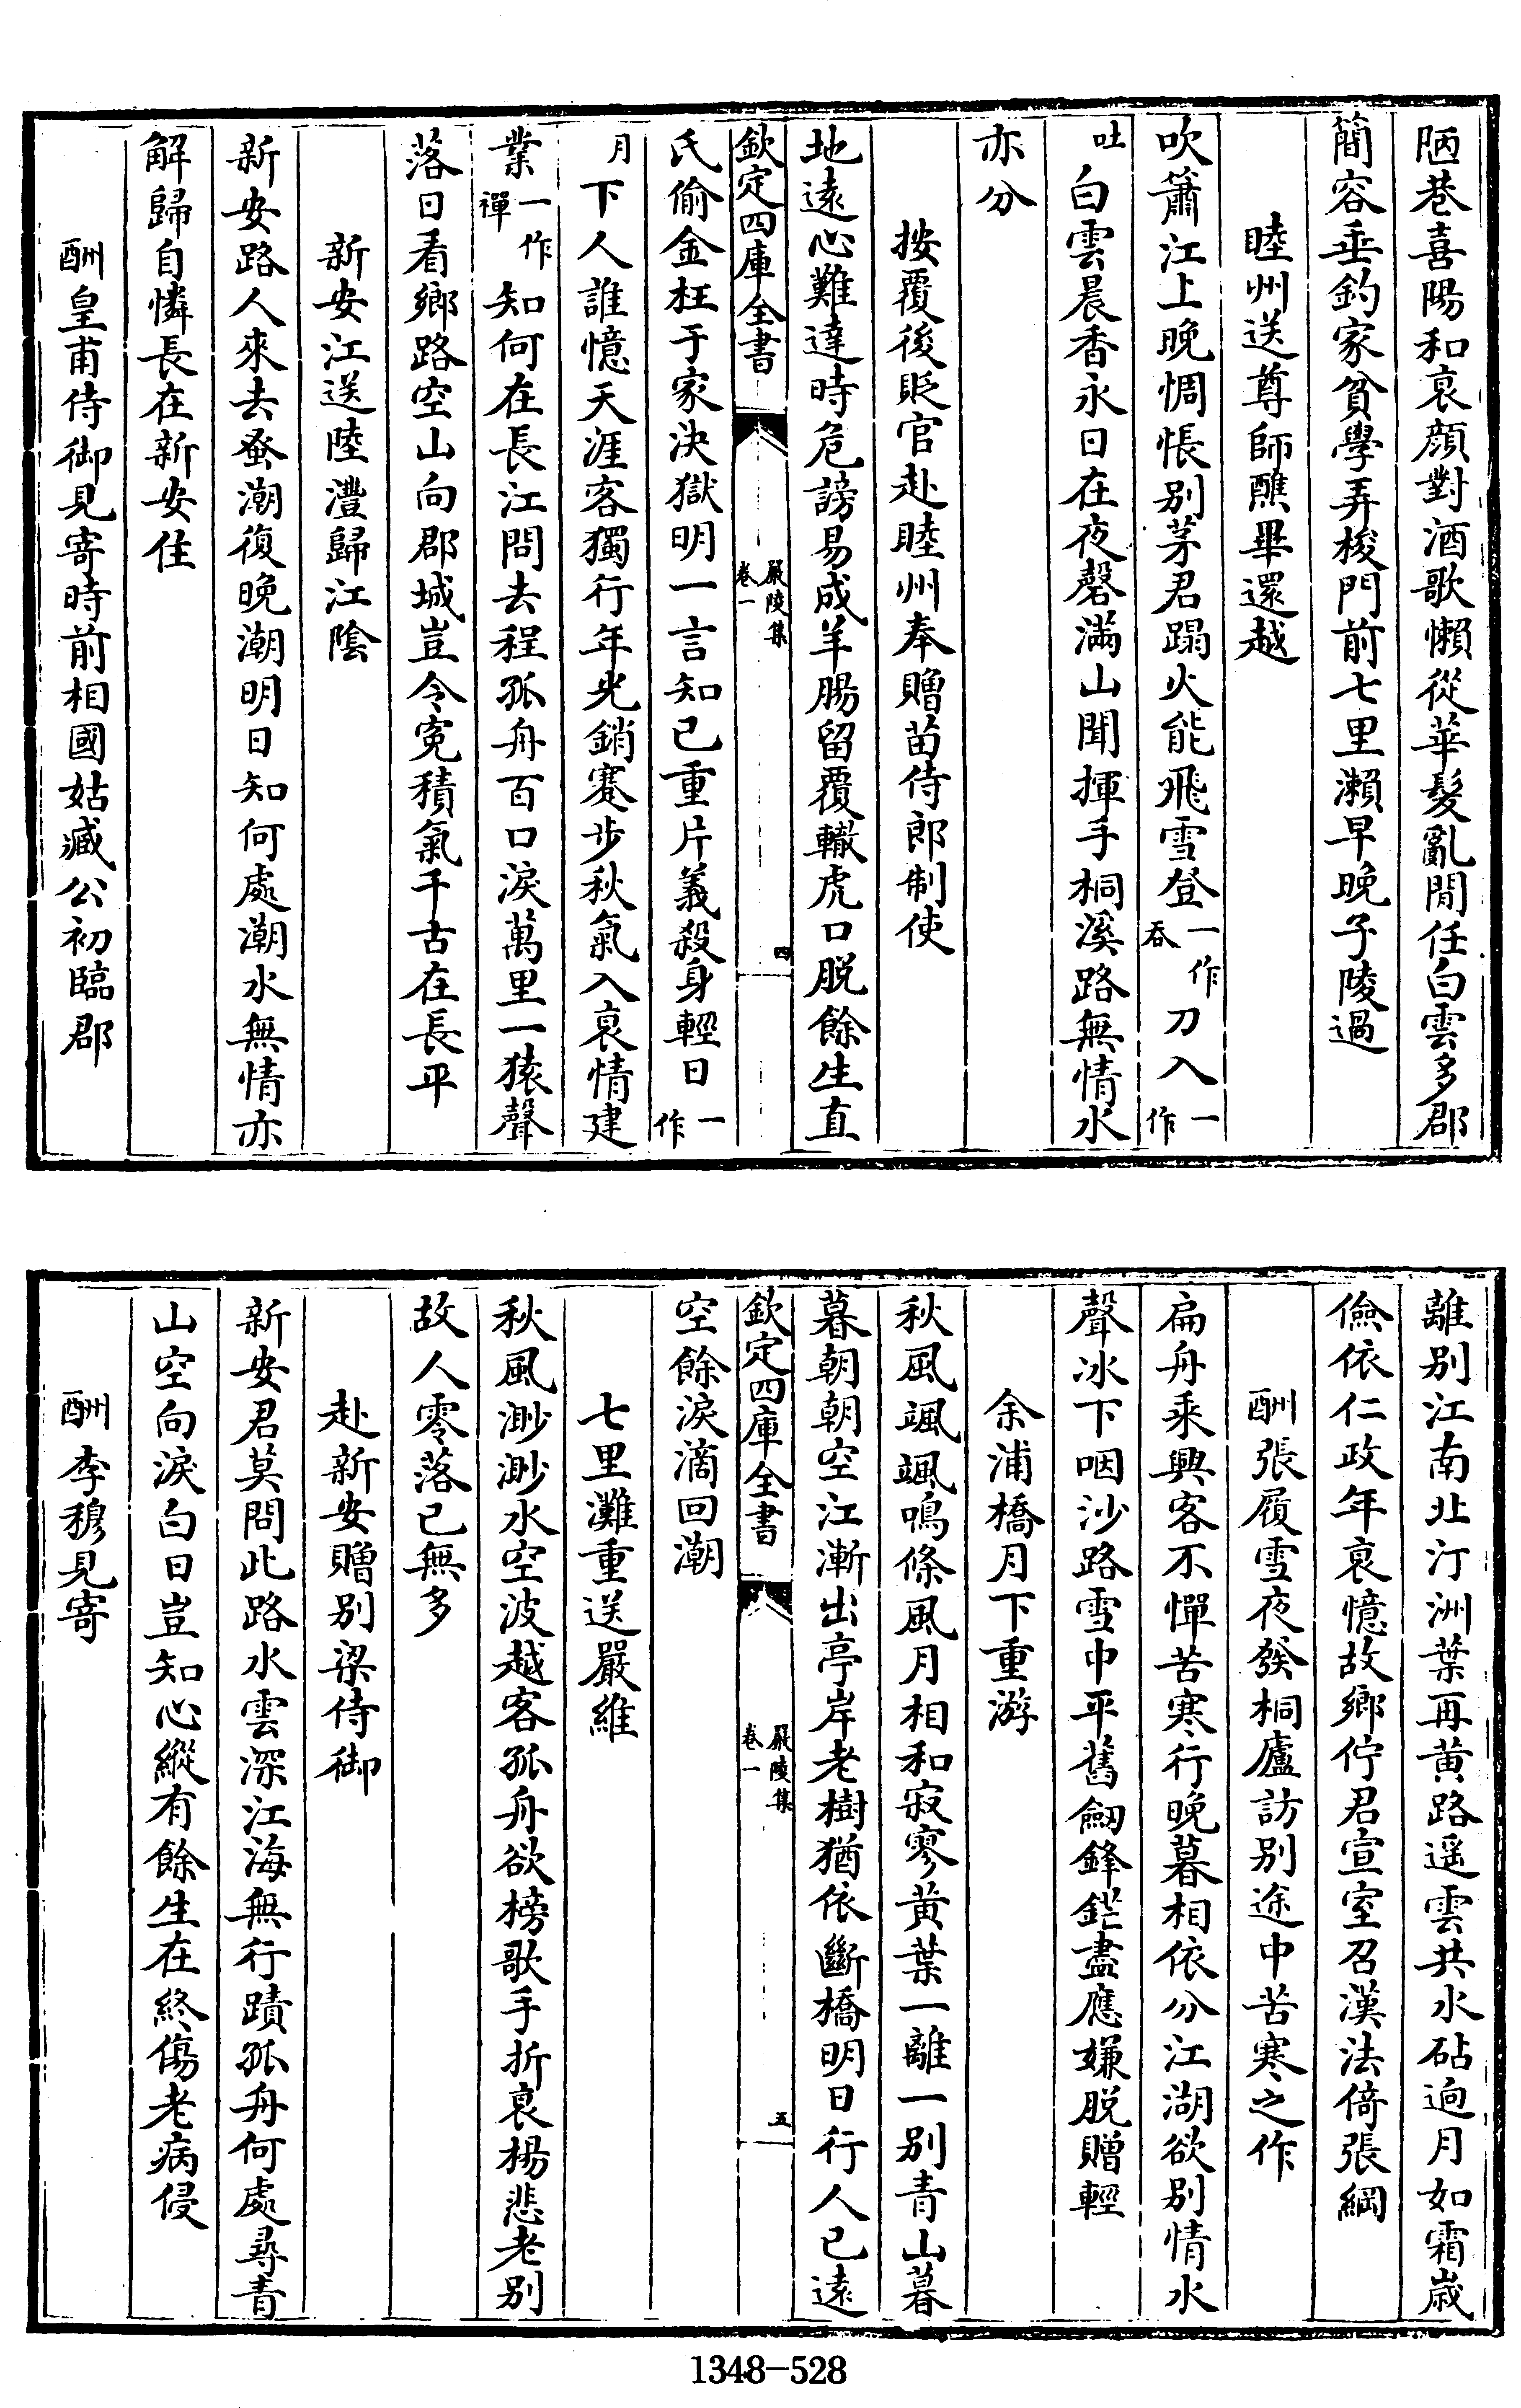 陋巷喜陽和哀顔對酒歌懶從華髮亂閒任白雲多郡
簡容垂釣家貧學弄梭門前七里瀨早晚子陵過
睦州送尊師醮畢還越
吹簫江上晚惆悵別茅君蹋火能飛雪登一作吞刀入一作
吐白雲晨香永日在夜磬滿山聞揮手桐溪路無情水
亦分
按覆後貶官赴睦州奉贈苗侍郎制使
地遠心難達時危謗易成羊腸留覆轍虎口脱餘生直
欽定四庫全書 嚴陵集 卷一 四
氏偷金枉于家決獄明一言知已重片義殺身輕日一作
月下人誰憶天涯客獨行年光銷蹇步秋氣入哀情建
業一作禪知何在長江問去程孤舟百口淚萬里一猿聲
落日看鄉路空山向郡城豈令寃積氣千古在長平
新安江送陸澧歸江陰
新安路人來去蚤潮復晚潮明日知何處潮水無情亦
解歸自憐長在新安住
酬皇甫侍御見寄時前相國姑臧公初臨郡
離別江南北汀洲葉再黃路遥雲共水砧逈月如霜歲
儉依仁政年哀憶故鄉佇君宣室召漢法倚張綱
酬張履雪夜發桐廬訪別途中苦寒之作
扁舟乘興客不憚苦寒行晚暮相依分江湖欲別情水
聲冰下咽沙路雪中平舊劒鋒鋩盡應嫌脱贈輕
余浦橋月下重游
秋風颯颯鳴條風月相和寂寥黃葉一離一別青山暮
暮朝朝空江漸出亭岸老樹猶依斷橋明日行人已遠
欽定四庫全書 嚴陵集 卷一 五
空餘淚滴回潮
七里灘重送嚴維
秋風渺渺水空波越客孤舟欲榜歌手折哀楊悲老別
故人零落已無多
赴新安贈別梁侍御
新安君莫問此路水雲深江海無行蹟孤舟何處尋青
山空向淚白日豈知心縱有餘生在終傷老病侵
酬李穆見寄
1348-528